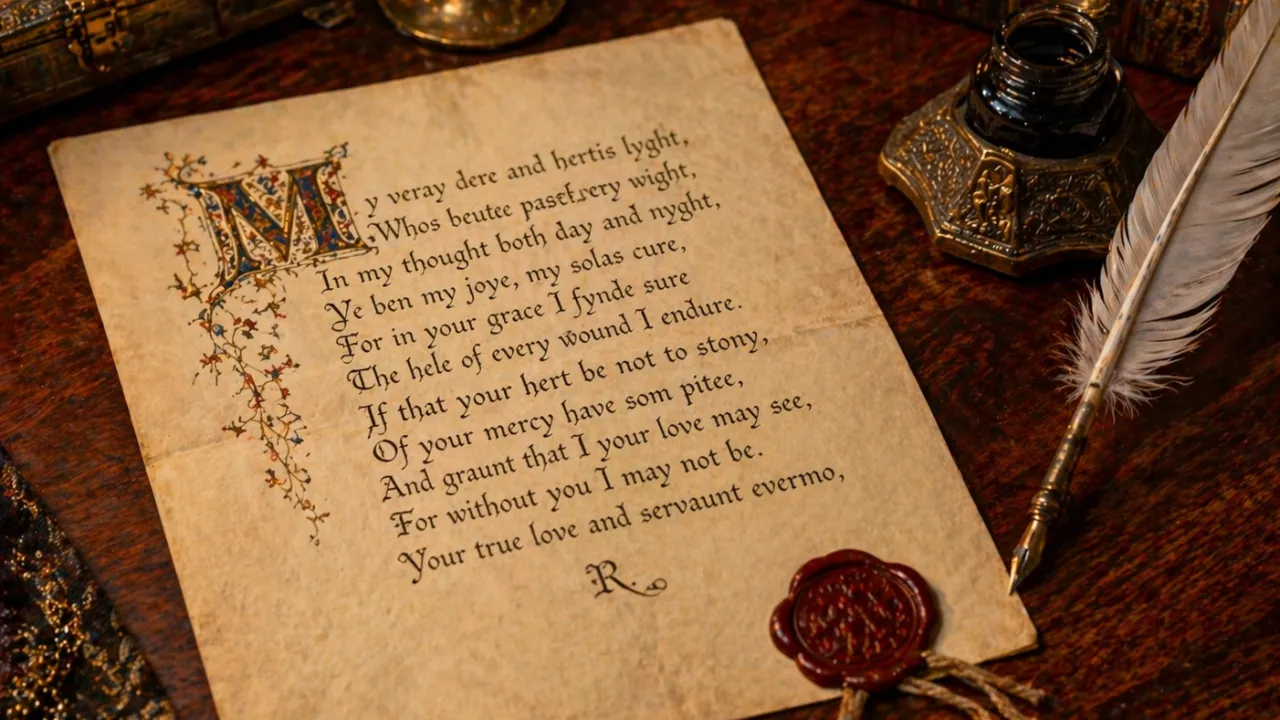 My veray dere and hertis lyght,
Whos beutee wight,
In my thought both day and nyght,
Ye ben my joye, my solas cure,
For in your grace I fynde sure
The hele of every wound I endure.
If that your hert be not to stony,
Of your mercy have som pitee,
And graunt that I your love may see,
For without you I may not be.
Your true love and servaunt evermo,
R.